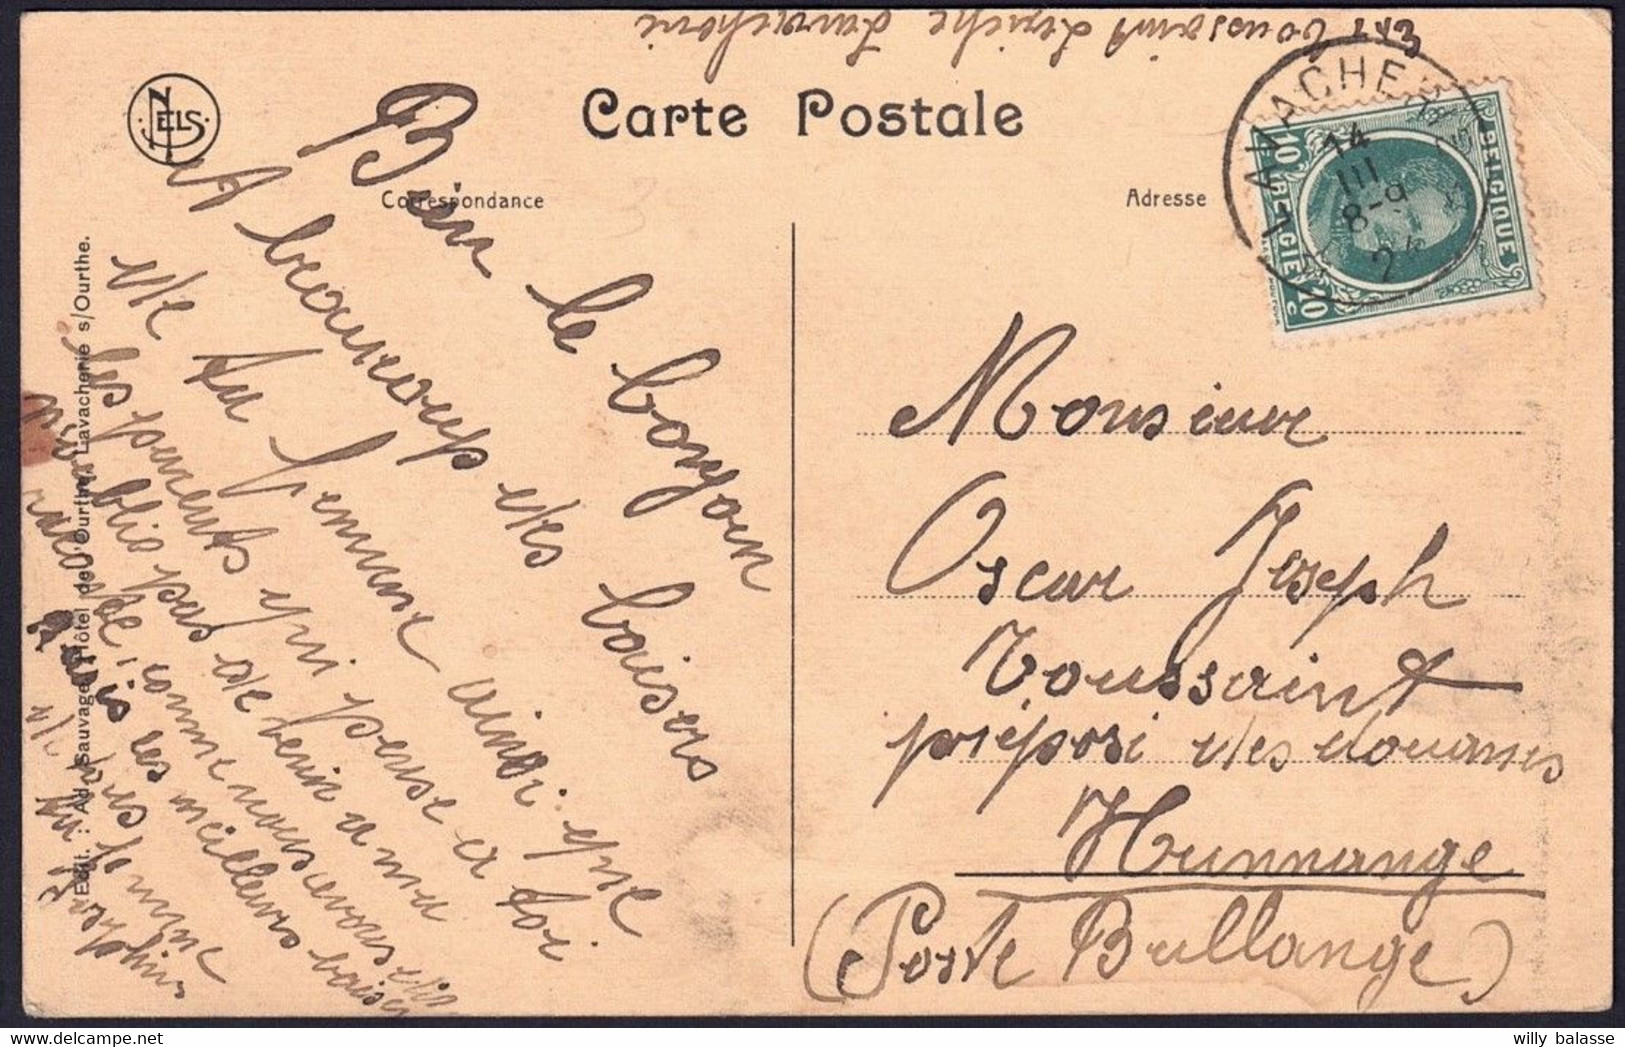 Toussaint Leriche Lavacherie
Carte Postale
NELS
Correspondance
Adresse
LAVACHERIE
14
III
8-9
24
BELGIQUE
BELGIË
10
10
c
Bien le bonjour
et beaucoup des baisers
de ta femme ainsi que
les parents qui pense a toi
n'oublie pas de venir a ma
comme nous
les meilleurs baisers
de ta femme
Joséphine
Edit. : Ad. Sauvage, Hôtel de l'Ourthe, Lavacherie s/Ourthe.
Monsieur
Oscar Joseph
Toussaint
préposé des douanes
Hunnange
(Poste Bullange)
willy balasse